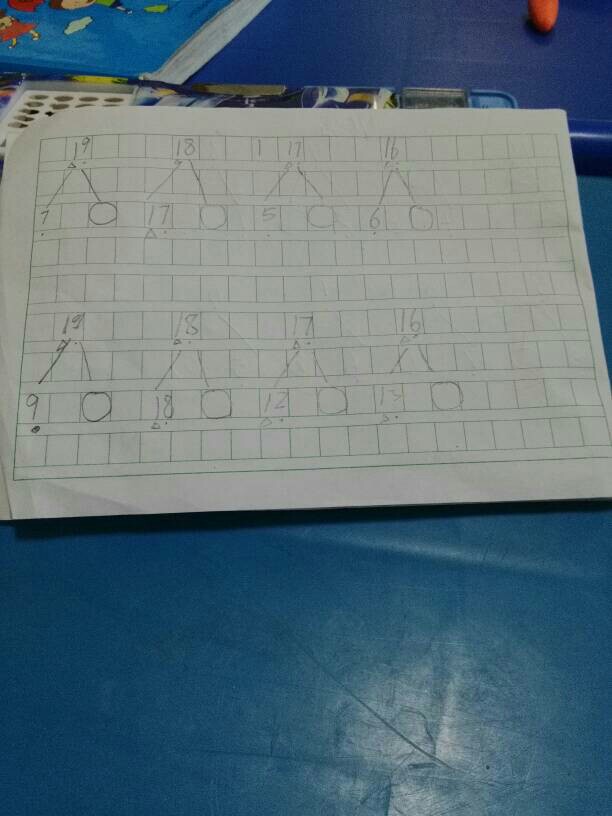 19 18 1 17 16
7 17 5 6
19 18 17 16
9 18 12 13